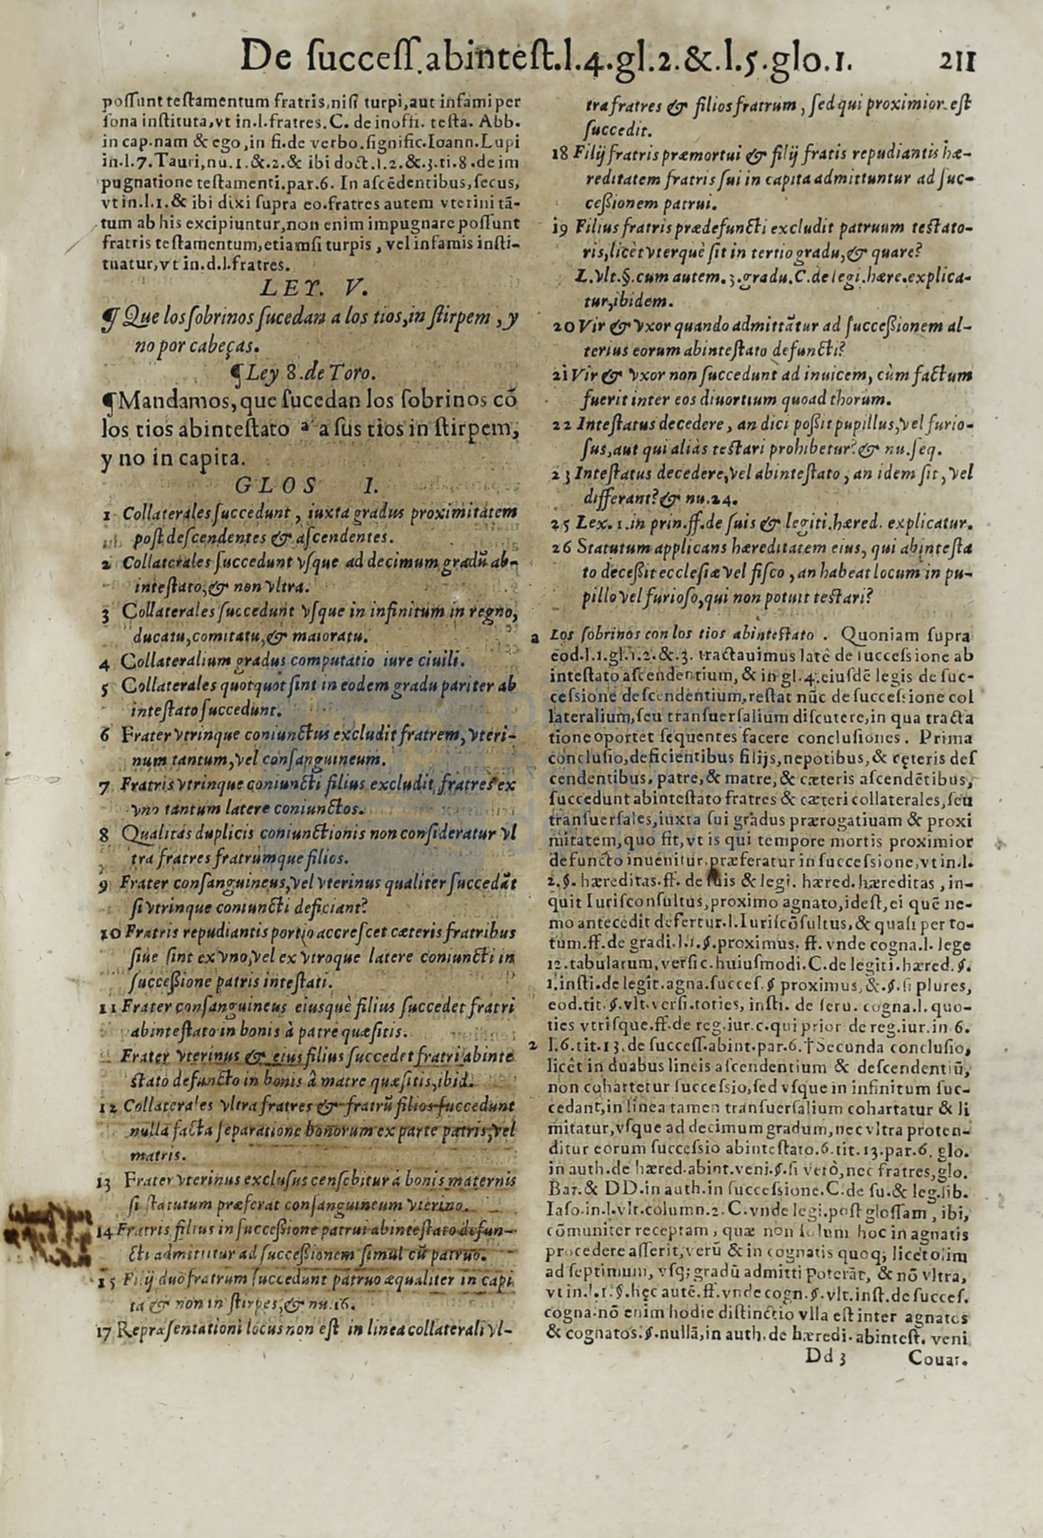 De success.abintest.l.4.gl.2.&.l.5.glo.1. 211
possunt testamentum fratris,nisi turpi,aut infami per
sona instituta,vt in.l.fratres.C. de inoffi. testa. Abb.
in cap.nam & ego,in fi.de verbo.signific.Ioann.Lupi
in.l.7.Tauri,nu.1.&.2.& ibi doct.l.2.&.3.ti.8.de im
pugnatione testamenti.par.6. In ascēdentibus,secus,
vt in.l.1.& ibi dixi supra eo.fratres autem vterini tā-
tum ab his excipiuntur,non enim impugnare possunt
fratris testamentum,etiamsi turpis , vel infamis insti-
tuatur,vt in.d.l.fratres.
LEY. V.
¶ Que los sobrinos sucedan a los tios,in stirpem ,y
no por cabeças.
¶Ley 8.de Toro.
¶Mandamos,que sucedan los sobrinos cō
los tios abintestato a a sus tios in stirpem,
y no in capita.
GLOS 1.
1 Collaterales succedunt , iuxta gradus proximitatem
post descendentes & ascendentes.
2 Collaterales succedunt vsque ad decimum gradū ab-
intestato,& non vltra.
3 Collaterales succedunt vsque in infinitum in regno,
ducatu,comitatu,& maioratu.
4 Collateralium gradus computatio iure ciuili.
5 Collaterales quotquot sint in eodem gradu pariter ab
intestato succedunt.
6 Frater vtrinque coniunctus excludit fratrem, vteri-
num tantum,vel consanguineum.
7 Fratris vtrinque coniuncti filius excludit, fratres ex
vno tantum latere coniunctos.
8 Qualitas duplicis coniunctionis non consideratur vl
tra fratres fratrumque filios.
9 Frater consanguineus,vel vterinus qualiter succedāt
si vtrinque coniuncti deficiant?
10 Fratris repudiantis portio accrescet cæteris fratribus
siue sint ex vno,vel ex vtroque latere coniuncti in
successione patris intestati.
11 Frater consanguineus eiusquè filius succedet fratri
abintestato in bonis à patre quæsitis.
Frater vterinus & eius filius succedet fratri abinte
stato defuncto in bonis à matre quæsitis,ibid.
12 Collaterales vltra fratres & fratrū filios succedunt
nulla facta separatione bonorum ex parte patris,vel
matris.
13 Frater vterinus exclusus censebitur à bonis maternis
si statutum præferat consanguineum vterino.
14 Fratris filius in successione patrui abintestato defun-
cti admittitur ad successionem simul cū patruo.
15 Filij duo fratrum succedunt patruo æqualiter in capi
ta & non in stirpes,& nu.16.
17 Repræsentationi locus non est in linea collaterali vl-
tra fratres & filios fratrum , sed qui proximior est
succedit.
18 Filij fratris præmortui & filij fratis repudiantis hæ-
reditatem fratris sui in capita admittuntur ad suc-
cessionem patrui.
19 Filius fratris prædefuncti excludit patruum testato-
ris,licèt vterquè sit in tertio gradu,& quare?
L.vlt.§.cum autem.3.gradu.C.de legi.hære.explica-
tur,ibidem.
20 Vir & vxor quando admittātur ad successionem al-
terius eorum abintestato defuncti?
21 Vir & vxor non succedunt ad inuicem, cùm factum
fuerit inter eos diuortium quoad thorum.
22 Intestatus decedere, an dici possit pupillus,vel furio-
sus,aut qui aliàs testari prohibetur?& nu.seq.
23 Intestatus decedere,vel abintestato , an idem sit, vel
differant?& nu.24.
25 Lex. 1.in prin.ff.de suis & legiti.hæred. explicatur.
26 Statutum applicans hæreditatem eius, qui abintesta
to decessit ecclesiæ vel fisco , an habeat locum in pu-
pillo vel furioso,qui non potuit testari?
a Los sobrinos con los tios abintestato . Quoniam supra
eod.l.1.gl.1.2.&.3. tractauimus latè de successione ab
intestato ascendentium, & in gl.4.eiusdē legis de suc-
cessione descendentium,restat nūc de successione col
lateralium,seu transuersalium discutere,in qua tracta
tione oportet sequentes facere conclusiones. Prima
conclusio,deficientibus filijs,nepotibus,& cęteris des
cendentibus, patre,& matre,& cæteris ascendētibus,
succedunt abintestato fratres & cæteri collaterales,seu
transuersales,iuxta sui gradus prærogatiuam & proxi
mitatem,quo fit,vt is qui tempore mortis proximior
defuncto inuenitur,præferatur in successione,vt in.l.
2.§. hæreditas.ff. de suis & legi. hæred.hæreditas , in-
quit Iurisconsultus,proximo agnato,idest,ei quē ne-
mo antecedit defertur.l.Iuriscōsultus,& quasi per to-
tum.ff.de gradi.l.1.§.proximus. ff. vnde cogna.l. lege
12.tabularum,versic.huiusmodi.C.de legiti.hæred.§.
1.insti.de legit.agna.succes.§ proximus,&.§.si plures,
eod.tit.§.vlt.versi.toties, insti. de seru. cogna.l. quo-
ties vtrisque.ff.de reg.iur.c.qui prior de reg.iur.in 6.
2 l.6.tit.13.de success.abint.par.6.†Secunda conclusio,
licèt in duabus lineis ascendentium & descendentiū,
non cohartetur successio,sed vsque in infinitum suc-
cedant,in linea tamen transuersalium cohartatur & li
mitatur,vsque ad decimum gradum,nec vltra proten-
ditur eorum successio abintestato.6.tit.13.par.6. glo.
in auth.de hæred.abint.veni.§.si verò,nec fratres,glo.
Bar.& DD.in auth.in successione.C.de su.& leg.lib.
Iaso.in.l.vlt.column.2.C.vnde legi.post glossam , ibi,
cōmuniter receptam, quæ non solum hoc in agnatis
procedere asserit,verū & in cognatis quoq; licèt olim
ad septimum, vsq; gradū admitti poterāt, & nō vltra,
vt in.l.1.§.hęc autē.ff.vnde cogn.§.vlt.inst.de succes.
cogna.nō enim hodie distinctio vlla est inter agnatos
& cognatos.§.nullā,in auth.de hæredi.abintest. veni
Dd 3 Couar.